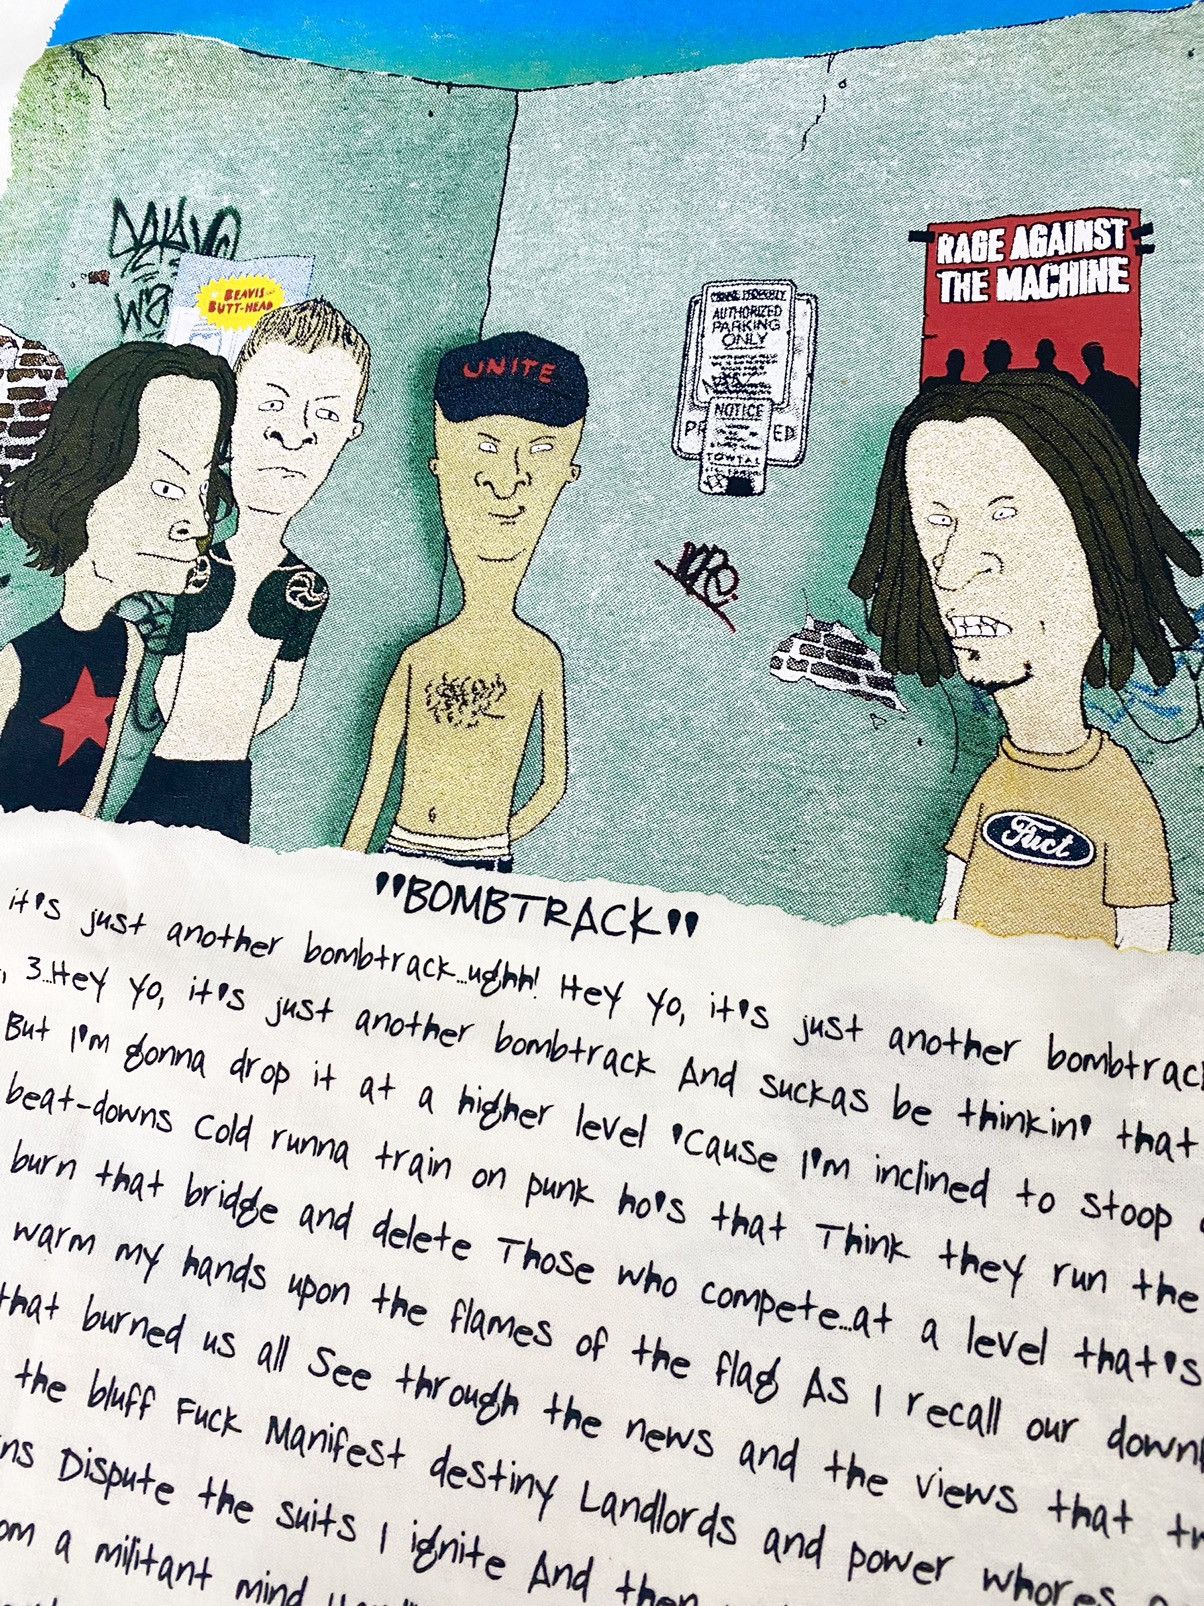 BEAVIS
BUTT-HEAD
UNITE
AUTHORIZED
PARKING
ONLY
NOTICE
RAGE AGAINST
THE MACHINE
Fuct
"BOMBTRACK"
it's just another bombtrack...ughh! Hey yo, it's just another bombtrack
, 3...Hey yo, it's just another bombtrack And suckas be thinkin' that
But I'm gonna drop it at a higher level 'Cause I'm inclined to stoop
beat-downs Cold runna train on punk ho's that Think they run the
burn that bridge and delete Those who compete...at a level that's
warm my hands upon the flames of the flag As I recall our down
that burned us all See through the news and the views that tw
the bluff Fuck Manifest destiny Landlords and power whores
ns Dispute the suits I ignite And then
om a militant mind